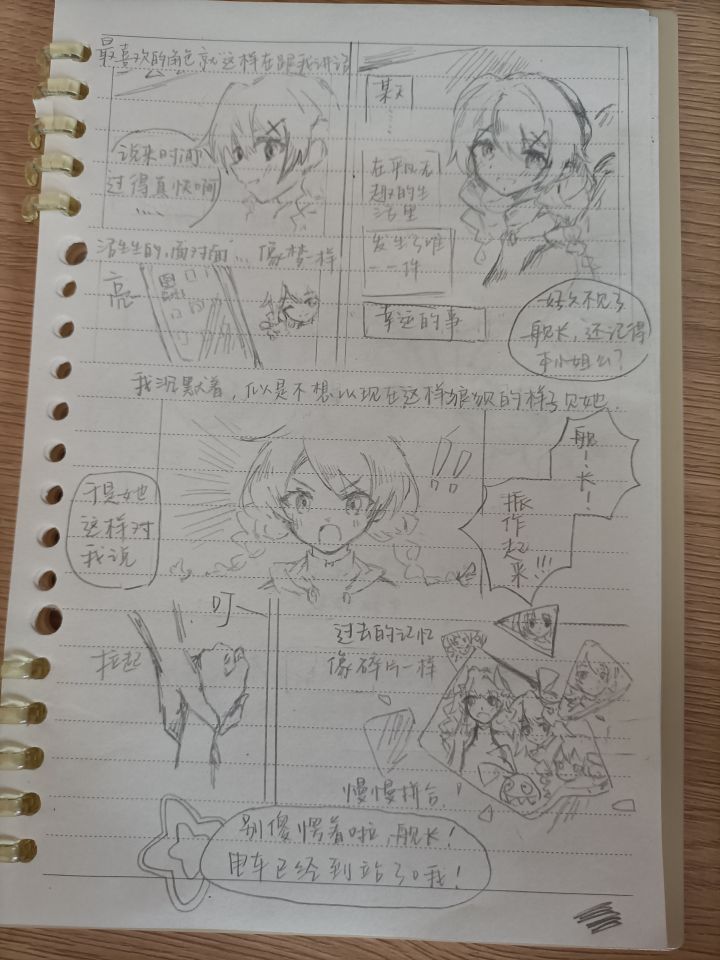 某天
……
在平凡无
趣的生
活里
发生了唯
一一件
幸运的事
好久不见了
舰长,还记得
本小姐么?
最喜欢的角色就这样在跟我讲话
说来时间
过得真快啊
……
活生生的,面对面…像梦一样
亮
我沉默着,似是不想以现在这样狼狈的样子见她…
舰!长!
振作起来!!!
于是她
这样对
我说
过去的记忆
像碎片一样
慢慢拼合
叮
拉起
别傻愣着啦,舰长!
电车已经到站了哦!